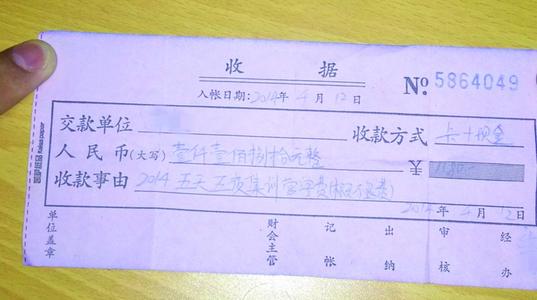 收 据
No. 5864049
入帐日期: 2014年 4 月 12 日
交款单位 收款方式 卡+现金
人民币(大写) 壹仟壹佰捌拾元整 ¥ 1180
收款事由 2014 五天五夜集训营学费
2014 年 4 月 12 日
单位盖章 财会主管 记帐 出纳 审核 经办